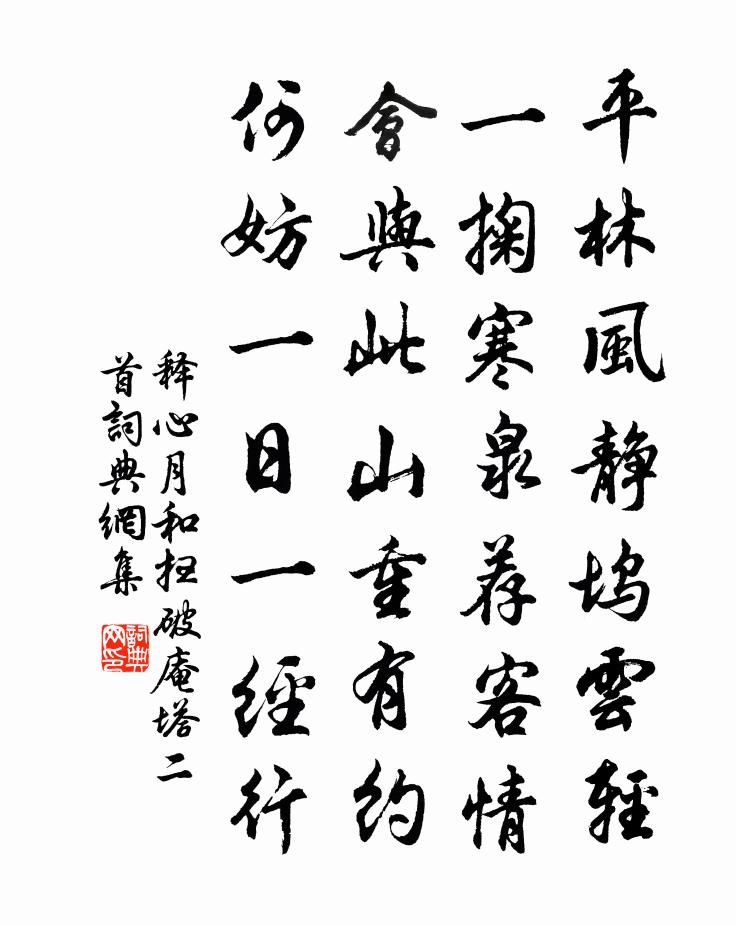 平林風静塢雲輕
一掬寒泉荐客情
會與此山重有約
何妨一日一經行
释心月和扫破庵塔二
首詞典網集
詞典
网印